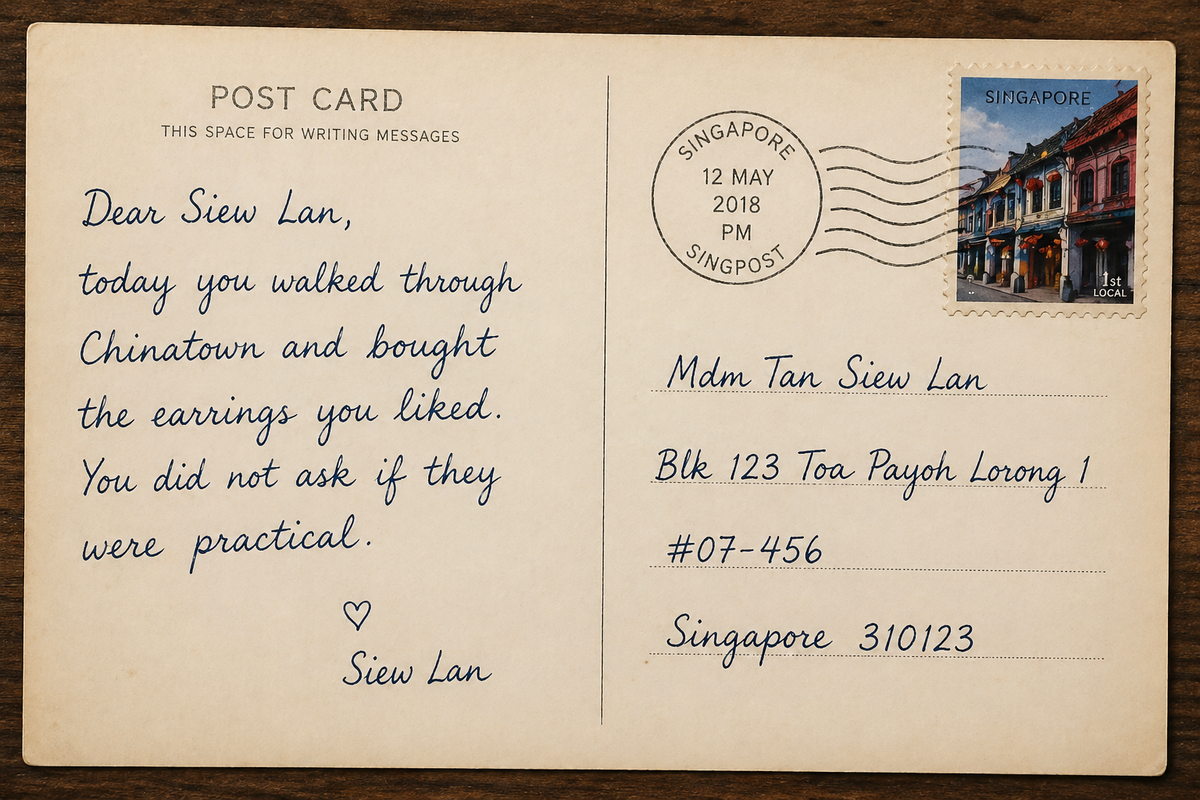 POST CARD
THIS SPACE FOR WRITING MESSAGES
Dear Siew Lan,
today you walked through
Chinatown and bought
the earrings you liked.
You did not ask if they
were practical.
♡
Siew Lan
SINGAPORE
12 MAY
2018
PM
SINGPOST
SINGAPORE
1st
LOCAL
Mdm Tan Siew Lan
Blk 123 Toa Payoh Lorong 1
#07-456
Singapore 310123